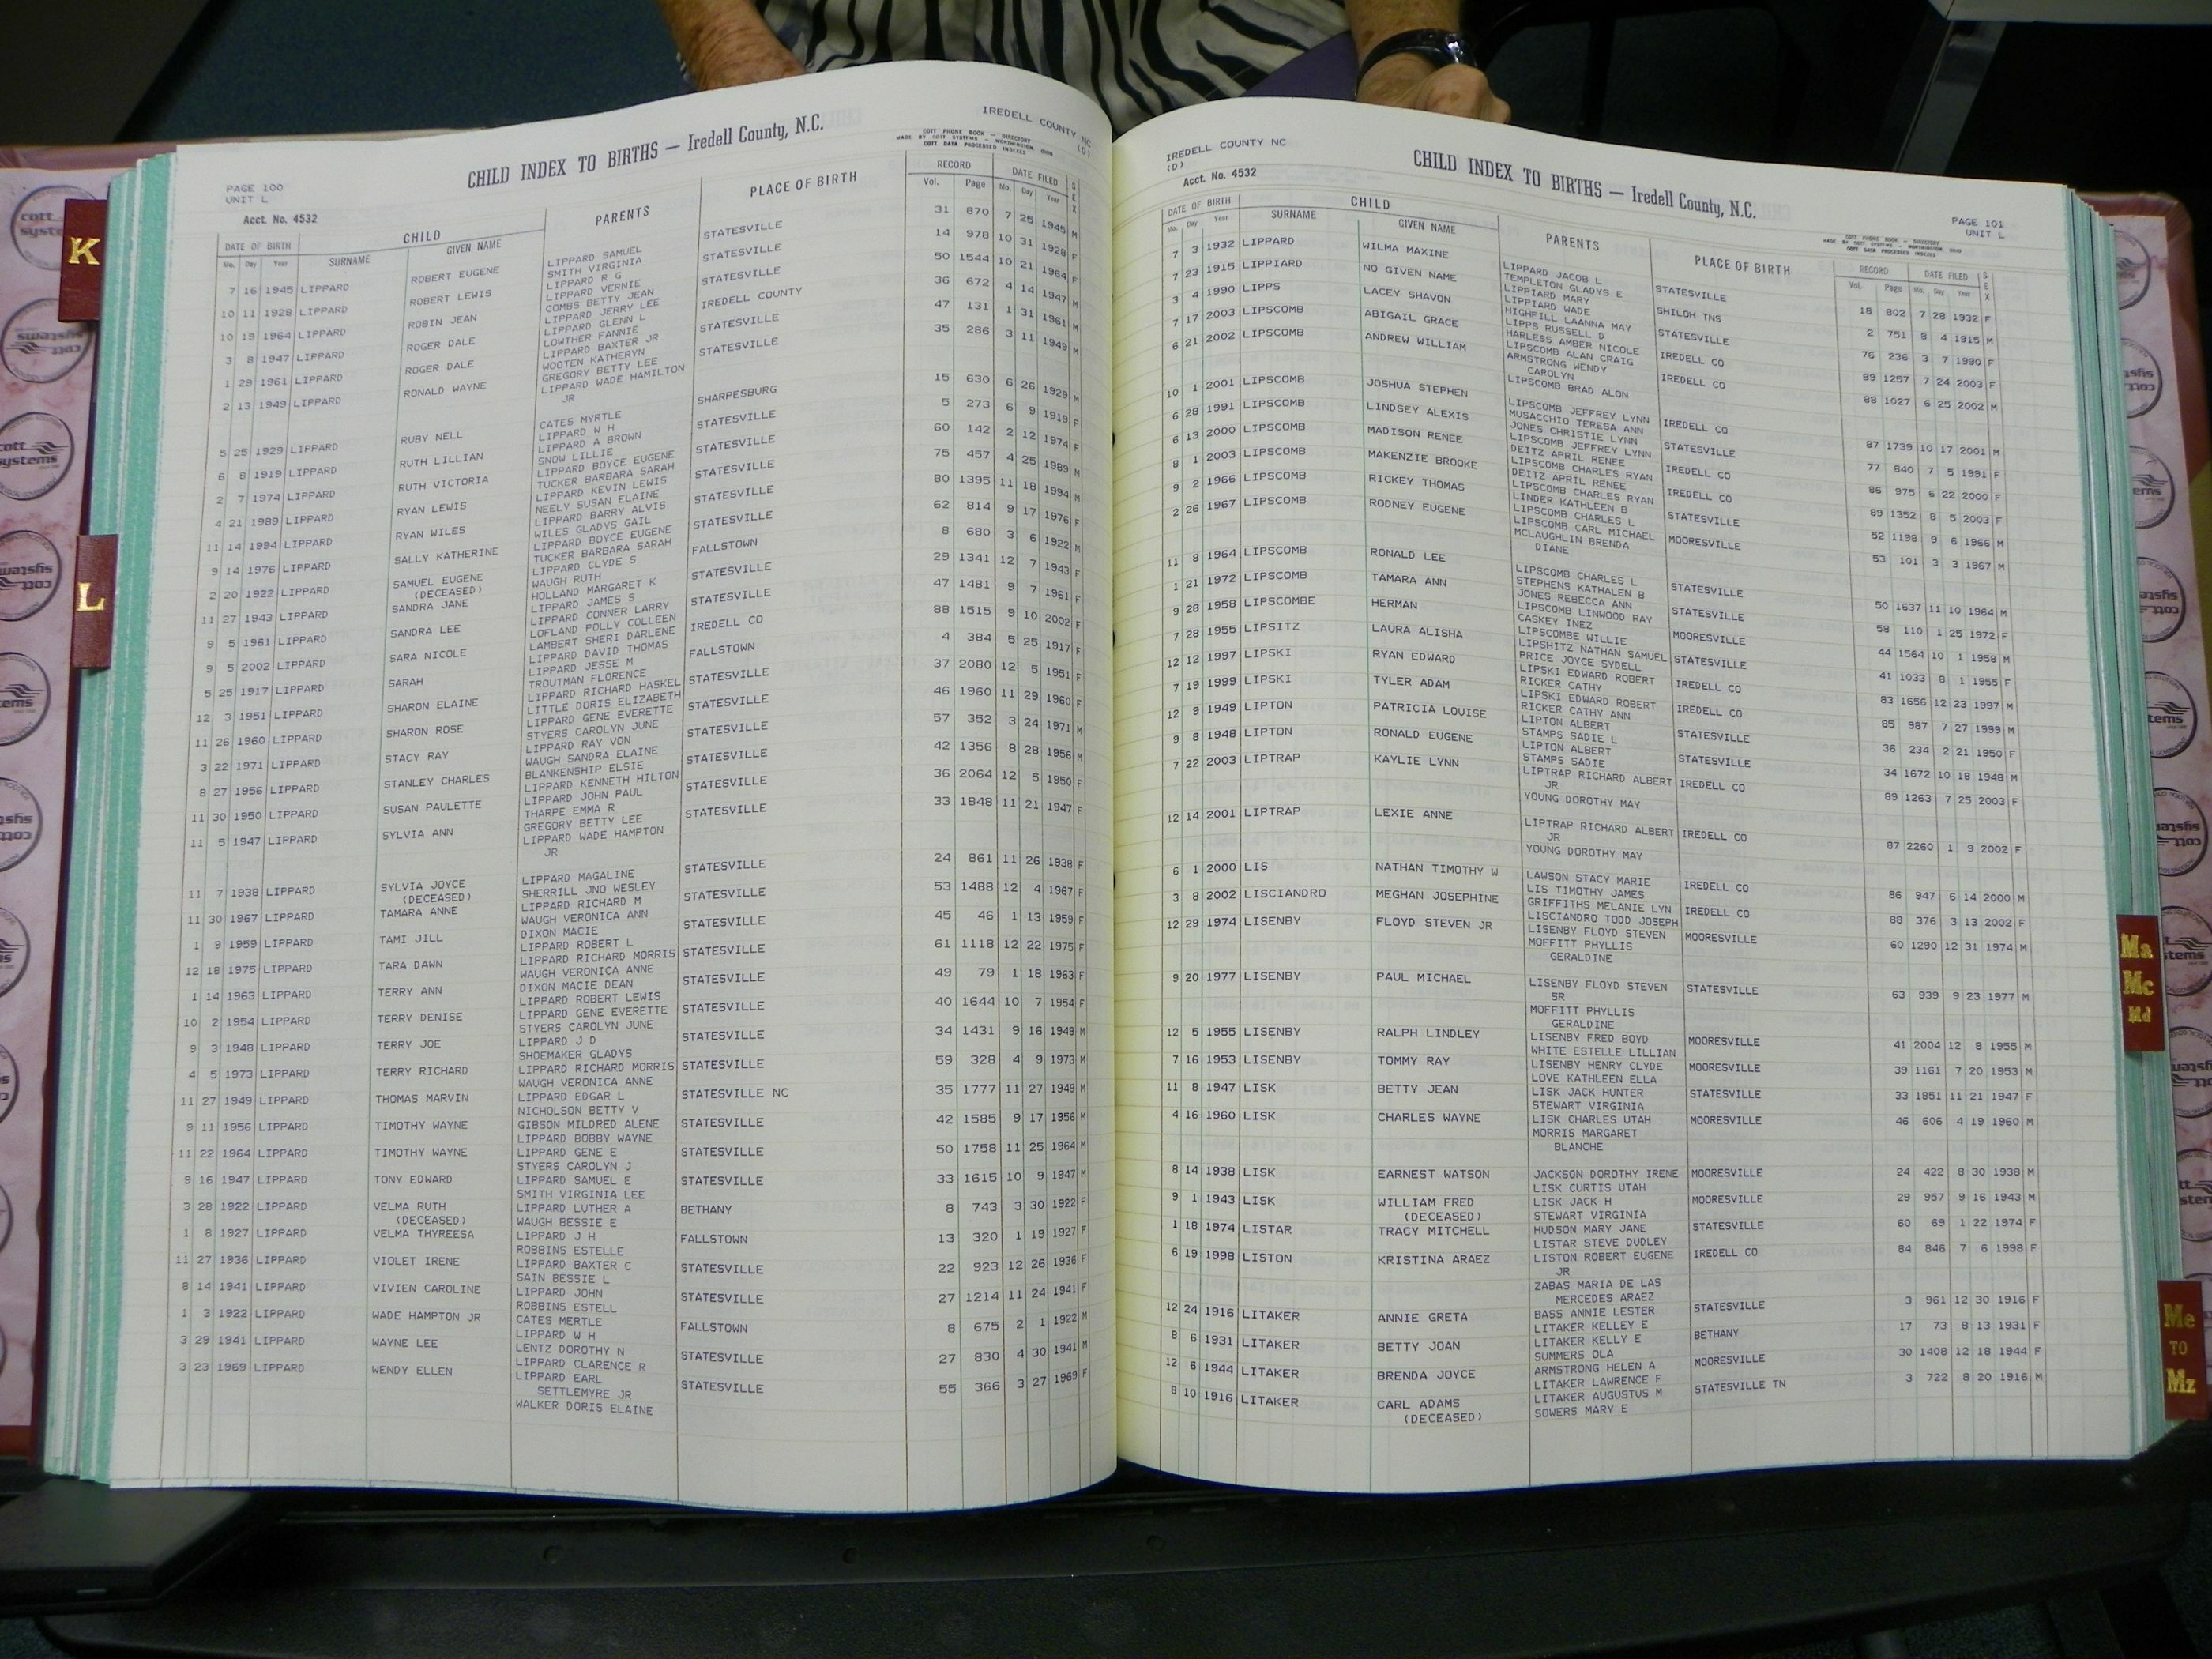 IREDELL COUNTY NC
(D)
CHILD INDEX TO BIRTHS — Iredell County, N.C.
COTT PHONE BOOK — DIRECTORY
MADE BY COTT SYSTEMS — WORTHINGTON OHIO
COTT DATA PROCESSED INDEXES
PAGE 100
UNIT L
Acct. No. 4532
DATE OF BIRTH CHILD PARENTS PLACE OF BIRTH RECORD DATE FILED SEX
Mo. Day Year SURNAME GIVEN NAME Vol. Page Mo. Day Year
7 16 1945 LIPPARD ROBERT EUGENE LIPPARD SAMUEL STATESVILLE 31 870 7 25 1945 M
SMITH VIRGINIA
10 11 1928 LIPPARD ROBERT LEWIS LIPPARD R G STATESVILLE 14 978 10 31 1928 F
LIPPARD VERNIE
10 19 1964 LIPPARD ROBIN JEAN COMBS BETTY JEAN STATESVILLE 50 1544 10 21 1964 F
LIPPARD JERRY LEE
3 8 1947 LIPPARD ROGER DALE LIPPARD GLENN L IREDELL COUNTY 36 672 4 14 1947 M
LOWTHER FANNIE
1 29 1961 LIPPARD ROGER DALE LIPPARD BAXTER JR STATESVILLE 47 131 1 31 1961 M
WOOTEN KATHERYN
2 13 1949 LIPPARD RONALD WAYNE GREGORY BETTY LEE STATESVILLE 35 286 3 11 1949 M
LIPPARD WADE HAMILTON
JR
5 25 1929 LIPPARD RUBY NELL CATES MYRTLE SHARPESBURG 15 630 6 26 1929 M
LIPPARD W H
6 8 1919 LIPPARD RUTH LILLIAN LIPPARD A BROWN STATESVILLE 5 273 6 9 1919 F
SNOW LILLIE
2 7 1974 LIPPARD RUTH VICTORIA LIPPARD BOYCE EUGENE STATESVILLE 60 142 2 12 1974 F
TUCKER BARBARA SARAH
4 21 1989 LIPPARD RYAN LEWIS LIPPARD KEVIN LEWIS STATESVILLE 75 457 4 25 1989 M
NEELY SUSAN ELAINE
11 14 1994 LIPPARD RYAN WILES LIPPARD BARRY ALVIS STATESVILLE 80 1395 11 18 1994 M
WILES GLADYS GAIL
9 14 1976 LIPPARD SALLY KATHERINE LIPPARD BOYCE EUGENE STATESVILLE 62 814 9 17 1976 F
TUCKER BARBARA SARAH
2 20 1922 LIPPARD SAMUEL EUGENE LIPPARD CLYDE S FALLSTOWN 8 680 3 6 1922 M
(DECEASED) WAUGH RUTH
11 27 1943 LIPPARD SANDRA JANE HOLLAND MARGARET K STATESVILLE 29 1341 12 7 1943 F
LIPPARD JAMES S
9 5 1961 LIPPARD SANDRA LEE LIPPARD CONNER LARRY STATESVILLE 47 1481 9 7 1961 F
LOFLAND POLLY COLLEEN
9 5 2002 LIPPARD SARA NICOLE LAMBERT SHERI DARLENE IREDELL CO 88 1515 9 10 2002 F
LIPPARD DAVID THOMAS
5 25 1917 LIPPARD SARAH LIPPARD JESSE M FALLSTOWN 4 384 5 25 1917 F
TROUTMAN FLORENCE
12 3 1951 LIPPARD SHARON ELAINE LIPPARD RICHARD HASKEL STATESVILLE 37 2080 12 5 1951 F
LITTLE DORIS ELIZABETH
11 26 1960 LIPPARD SHARON ROSE LIPPARD GENE EVERETTE STATESVILLE 46 1960 11 29 1960 F
STYERS CAROLYN JUNE
3 22 1971 LIPPARD STACY RAY LIPPARD RAY VON STATESVILLE 57 352 3 24 1971 M
WAUGH SANDRA ELAINE
8 27 1956 LIPPARD STANLEY CHARLES BLANKENSHIP ELSIE STATESVILLE 42 1356 8 28 1956 M
LIPPARD KENNETH HILTON
11 30 1950 LIPPARD SUSAN PAULETTE LIPPARD JOHN PAUL STATESVILLE 36 2064 12 5 1950 F
THARPE EMMA R
11 5 1947 LIPPARD SYLVIA ANN GREGORY BETTY LEE STATESVILLE 33 1848 11 21 1947 F
LIPPARD WADE HAMPTON
JR
11 7 1938 LIPPARD SYLVIA JOYCE LIPPARD MAGALINE STATESVILLE 24 861 11 26 1938 F
(DECEASED) SHERRILL JNO WESLEY
11 30 1967 LIPPARD TAMARA ANNE LIPPARD RICHARD M STATESVILLE 53 1488 12 4 1967 F
WAUGH VERONICA ANN
1 9 1959 LIPPARD TAMI JILL DIXON MACIE STATESVILLE 45 46 1 13 1959 F
LIPPARD ROBERT L
12 18 1975 LIPPARD TARA DAWN LIPPARD RICHARD MORRIS STATESVILLE 61 1118 12 22 1975 F
WAUGH VERONICA ANNE
1 14 1963 LIPPARD TERRY ANN DIXON MACIE DEAN STATESVILLE 49 79 1 18 1963 F
LIPPARD ROBERT LEWIS
10 2 1954 LIPPARD TERRY DENISE LIPPARD GENE EVERETTE STATESVILLE 40 1644 10 7 1954 F
STYERS CAROLYN JUNE
9 3 1948 LIPPARD TERRY JOE LIPPARD J D STATESVILLE 34 1431 9 16 1948 M
SHOEMAKER GLADYS
4 5 1973 LIPPARD TERRY RICHARD LIPPARD RICHARD MORRIS STATESVILLE 59 328 4 9 1973 M
WAUGH VERONICA ANNE
11 27 1949 LIPPARD THOMAS MARVIN LIPPARD EDGAR L STATESVILLE NC 35 1777 11 27 1949 M
NICHOLSON BETTY V
9 11 1956 LIPPARD TIMOTHY WAYNE GIBSON MILDRED ALENE STATESVILLE 42 1585 9 17 1956 M
LIPPARD BOBBY WAYNE
11 22 1964 LIPPARD TIMOTHY WAYNE LIPPARD GENE E STATESVILLE 50 1758 11 25 1964 M
STYERS CAROLYN J
9 16 1947 LIPPARD TONY EDWARD LIPPARD SAMUEL E STATESVILLE 33 1615 10 9 1947 M
SMITH VIRGINIA LEE
3 28 1922 LIPPARD VELMA RUTH LIPPARD LUTHER A BETHANY 8 743 3 30 1922 F
(DECEASED) WAUGH BESSIE E
1 8 1927 LIPPARD VELMA THYREESA LIPPARD J H FALLSTOWN 13 320 1 19 1927 F
ROBBINS ESTELLE
11 27 1936 LIPPARD VIOLET IRENE LIPPARD BAXTER C STATESVILLE 22 923 12 26 1936 F
SAIN BESSIE L
8 14 1941 LIPPARD VIVIEN CAROLINE LIPPARD JOHN STATESVILLE 27 1214 11 24 1941 F
ROBBINS ESTELL
1 3 1922 LIPPARD WADE HAMPTON JR CATES MERTLE FALLSTOWN 8 675 2 1 1922 M
LIPPARD W H
3 29 1941 LIPPARD WAYNE LEE LENTZ DOROTHY N STATESVILLE 27 830 4 30 1941 M
LIPPARD CLARENCE R
3 23 1969 LIPPARD WENDY ELLEN LIPPARD EARL STATESVILLE 55 366 3 27 1969 F
SETTLEMYRE JR
WALKER DORIS ELAINE
IREDELL COUNTY NC
(D)
Acct. No. 4532
CHILD INDEX TO BIRTHS — Iredell County, N.C.
PAGE 101
UNIT L
COTT PHONE BOOK — DIRECTORY
MADE BY COTT SYSTEMS — WORTHINGTON OHIO
COTT DATA PROCESSED INDEXES
DATE OF BIRTH CHILD PARENTS PLACE OF BIRTH RECORD DATE FILED SEX
Mo. Day Year SURNAME GIVEN NAME Vol. Page Mo. Day Year
7 3 1932 LIPPARD WILMA MAXINE LIPPARD JACOB L STATESVILLE 18 802 7 28 1932 F
TEMPLETON GLADYS E
7 23 1915 LIPPIARD NO GIVEN NAME LIPPIARD MARY SHILOH TNS 2 751 8 4 1915 M
LIPPIARD WADE
3 4 1990 LIPPS LACEY SHAVON HIGHFILL LAANNA MAY STATESVILLE 76 236 3 7 1990 F
LIPPS RUSSELL D
7 17 2003 LIPSCOMB ABIGAIL GRACE HARLESS AMBER NICOLE IREDELL CO 89 1257 7 24 2003 F
LIPSCOMB ALAN CRAIG
6 21 2002 LIPSCOMB ANDREW WILLIAM ARMSTRONG WENDY IREDELL CO 88 1027 6 25 2002 M
CAROLYN
LIPSCOMB BRAD ALON
10 1 2001 LIPSCOMB JOSHUA STEPHEN LIPSCOMB JEFFREY LYNN IREDELL CO 87 1739 10 17 2001 M
MUSACCHIO TERESA ANN
6 28 1991 LIPSCOMB LINDSEY ALEXIS JONES CHRISTIE LYNN STATESVILLE 77 840 7 5 1991 F
LIPSCOMB JEFFREY LYNN
6 13 2000 LIPSCOMB MADISON RENEE DEITZ APRIL RENEE IREDELL CO 86 975 6 22 2000 F
LIPSCOMB CHARLES RYAN
8 1 2003 LIPSCOMB MAKENZIE BROOKE DEITZ APRIL RENEE IREDELL CO 89 1352 8 5 2003 F
LIPSCOMB CHARLES RYAN
9 2 1966 LIPSCOMB RICKEY THOMAS LINDER KATHLEEN B STATESVILLE 52 1198 9 6 1966 M
LIPSCOMB CHARLES L
2 26 1967 LIPSCOMB RODNEY EUGENE LIPSCOMB CARL MICHAEL MOORESVILLE 53 101 3 3 1967 M
MCLAUGHLIN BRENDA
DIANE
11 8 1964 LIPSCOMB RONALD LEE LIPSCOMB CHARLES L STATESVILLE 50 1637 11 10 1964 M
STEPHENS KATHALEN B
1 21 1972 LIPSCOMB TAMARA ANN JONES REBECCA ANN STATESVILLE 58 110 1 25 1972 F
LIPSCOMB LINWOOD RAY
9 28 1958 LIPSCOMBE HERMAN CASKEY INEZ MOORESVILLE 44 1564 10 1 1958 M
LIPSCOMBE WILLIE
7 28 1955 LIPSITZ LAURA ALISHA LIPSHITZ NATHAN SAMUEL STATESVILLE 41 1033 8 1 1955 F
PRICE JOYCE SYDELL
12 12 1997 LIPSKI RYAN EDWARD LIPSKI EDWARD ROBERT IREDELL CO 83 1656 12 23 1997 M
RICKER CATHY
7 19 1999 LIPSKI TYLER ADAM LIPSKI EDWARD ROBERT IREDELL CO 85 987 7 27 1999 M
RICKER CATHY ANN
12 9 1949 LIPTON PATRICIA LOUISE LIPTON ALBERT STATESVILLE 36 234 2 21 1950 F
STAMPS SADIE L
9 8 1948 LIPTON RONALD EUGENE LIPTON ALBERT STATESVILLE 34 1672 10 18 1948 M
STAMPS SADIE
7 22 2003 LIPTRAP KAYLIE LYNN LIPTRAP RICHARD ALBERT IREDELL CO 89 1263 7 25 2003 F
JR
YOUNG DOROTHY MAY
12 14 2001 LIPTRAP LEXIE ANNE LIPTRAP RICHARD ALBERT IREDELL CO 87 2260 1 9 2002 F
JR
YOUNG DOROTHY MAY
6 1 2000 LIS NATHAN TIMOTHY W LAWSON STACY MARIE IREDELL CO 86 947 6 14 2000 M
LIS TIMOTHY JAMES
3 8 2002 LISCIANDRO MEGHAN JOSEPHINE GRIFFITHS MELANIE LYN IREDELL CO 88 376 3 13 2002 F
LISCIANDRO TODD JOSEPH
12 29 1974 LISENBY FLOYD STEVEN JR LISENBY FLOYD STEVEN MOORESVILLE 60 1290 12 31 1974 M
MOFFITT PHYLLIS
GERALDINE
9 20 1977 LISENBY PAUL MICHAEL LISENBY FLOYD STEVEN STATESVILLE 63 939 9 23 1977 M
SR
MOFFITT PHYLLIS
GERALDINE
12 5 1955 LISENBY RALPH LINDLEY LISENBY FRED BOYD MOORESVILLE 41 2004 12 8 1955 M
WHITE ESTELLE LILLIAN
7 16 1953 LISENBY TOMMY RAY LISENBY HENRY CLYDE MOORESVILLE 39 1161 7 20 1953 M
LOVE KATHLEEN ELLA
11 8 1947 LISK BETTY JEAN LISK JACK HUNTER STATESVILLE 33 1851 11 21 1947 F
STEWART VIRGINIA
4 16 1960 LISK CHARLES WAYNE LISK CHARLES UTAH MOORESVILLE 46 606 4 19 1960 M
MORRIS MARGARET
BLANCHE
8 14 1938 LISK EARNEST WATSON JACKSON DOROTHY IRENE MOORESVILLE 24 422 8 30 1938 M
LISK CURTIS UTAH
9 1 1943 LISK WILLIAM FRED LISK JACK H MOORESVILLE 29 957 9 16 1943 M
(DECEASED) STEWART VIRGINIA
1 18 1974 LISTAR TRACY MITCHELL HUDSON MARY JANE STATESVILLE 60 69 1 22 1974 F
LISTAR STEVE DUDLEY
6 19 1998 LISTON KRISTINA ARAEZ LISTON ROBERT EUGENE IREDELL CO 84 846 7 6 1998 F
JR
ZABAS MARIA DE LAS
MERCEDES ARAEZ
12 24 1916 LITAKER ANNIE GRETA BASS ANNIE LESTER STATESVILLE 3 961 12 30 1916 F
LITAKER KELLEY E
8 6 1931 LITAKER BETTY JOAN LITAKER KELLY E BETHANY 17 73 8 13 1931 F
SUMMERS OLA
12 6 1944 LITAKER BRENDA JOYCE ARMSTRONG HELEN A MOORESVILLE 30 1408 12 18 1944 F
LITAKER LAWRENCE F
8 10 1916 LITAKER CARL ADAMS LITAKER AUGUSTUS M STATESVILLE TN 3 722 8 20 1916 M
(DECEASED) SOWERS MARY E
K
L
Ma
Mc
Md
Me
TO
Mz
cott
systems